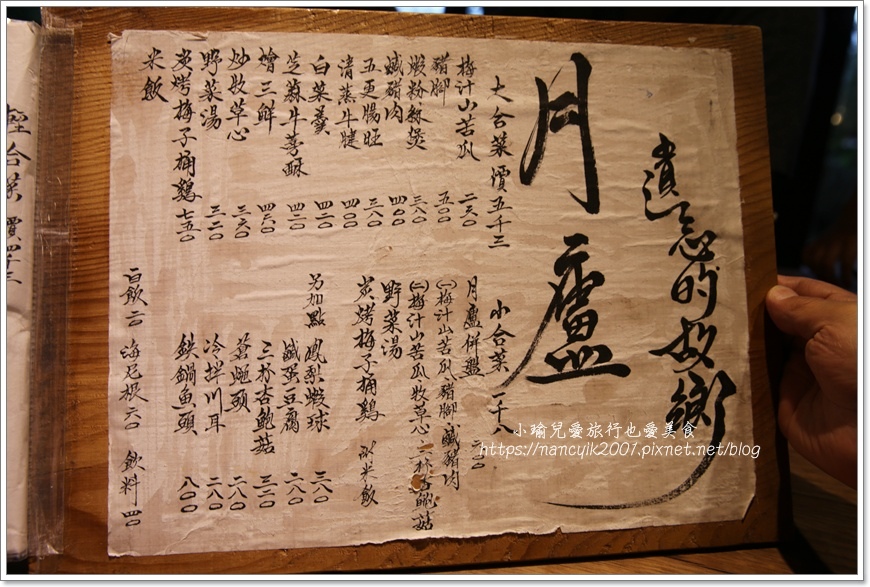 遺忘的故鄉
月廬
大合菜 價五千三
梅汁山苦瓜 二六〇
豬腳 五〇〇
蝦粉絲煲 三八〇
鹹豬肉 四〇〇
五更腸旺 三八〇
清蒸牛腱 四〇〇
白菜羹 四二〇
芝蔴牛蒡酥 四二〇
燴三鮮 四六〇
炒牧草心 三六〇
野菜湯 三二〇
炭烤梅子桶鷄 七五〇
米飲
小合菜 一千八
月廬併盤
(一)梅汁山苦瓜 豬腳 鹹豬肉
(二)梅汁山苦瓜 牧草心 三杯杏鮑菇
野菜湯
炭烤梅子桶鷄 附米飲
另加點 鳳梨蝦球 三六〇
鹹蛋豆腐 二八〇
三杯杏鮑菇 三二〇
蒼蠅頭 二八〇
冷拌川耳 二八〇
鉄鍋魚頭 八〇〇
白飲 二〇 海尼根 六〇 飲料 四〇
輕合菜 價四千三
小瑜兒愛旅行也愛美食
https://nancylk2001.pixnet.net/blog